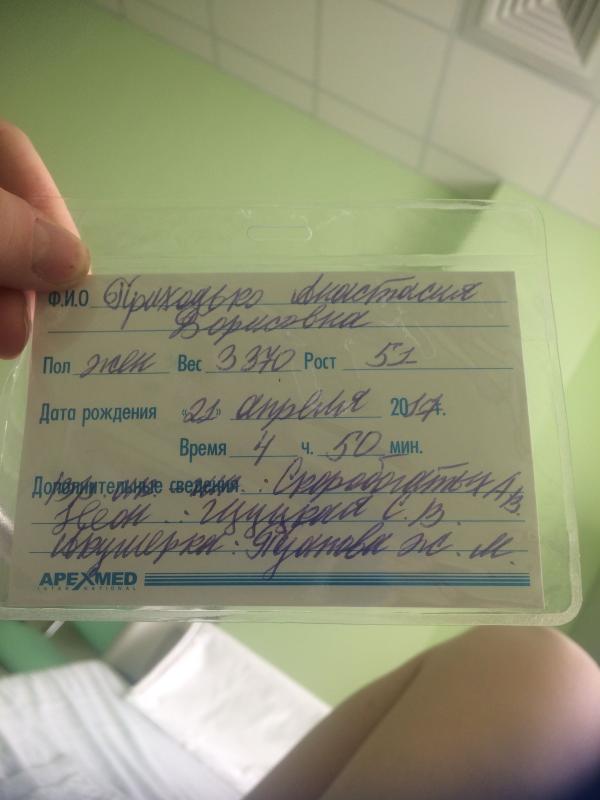 Ф.И.О Приходько Анастасия
Борисовна
Пол жен Вес 3 370 Рост 51
Дата рождения «21» апреля 2017г.
Время 4 ч. 50 мин.
Дополнительные сведения .: Скоробогатых А.В.
Неон .: С. В.
Акушерка: Ж. М.
APEXMED
INTERNATIONAL